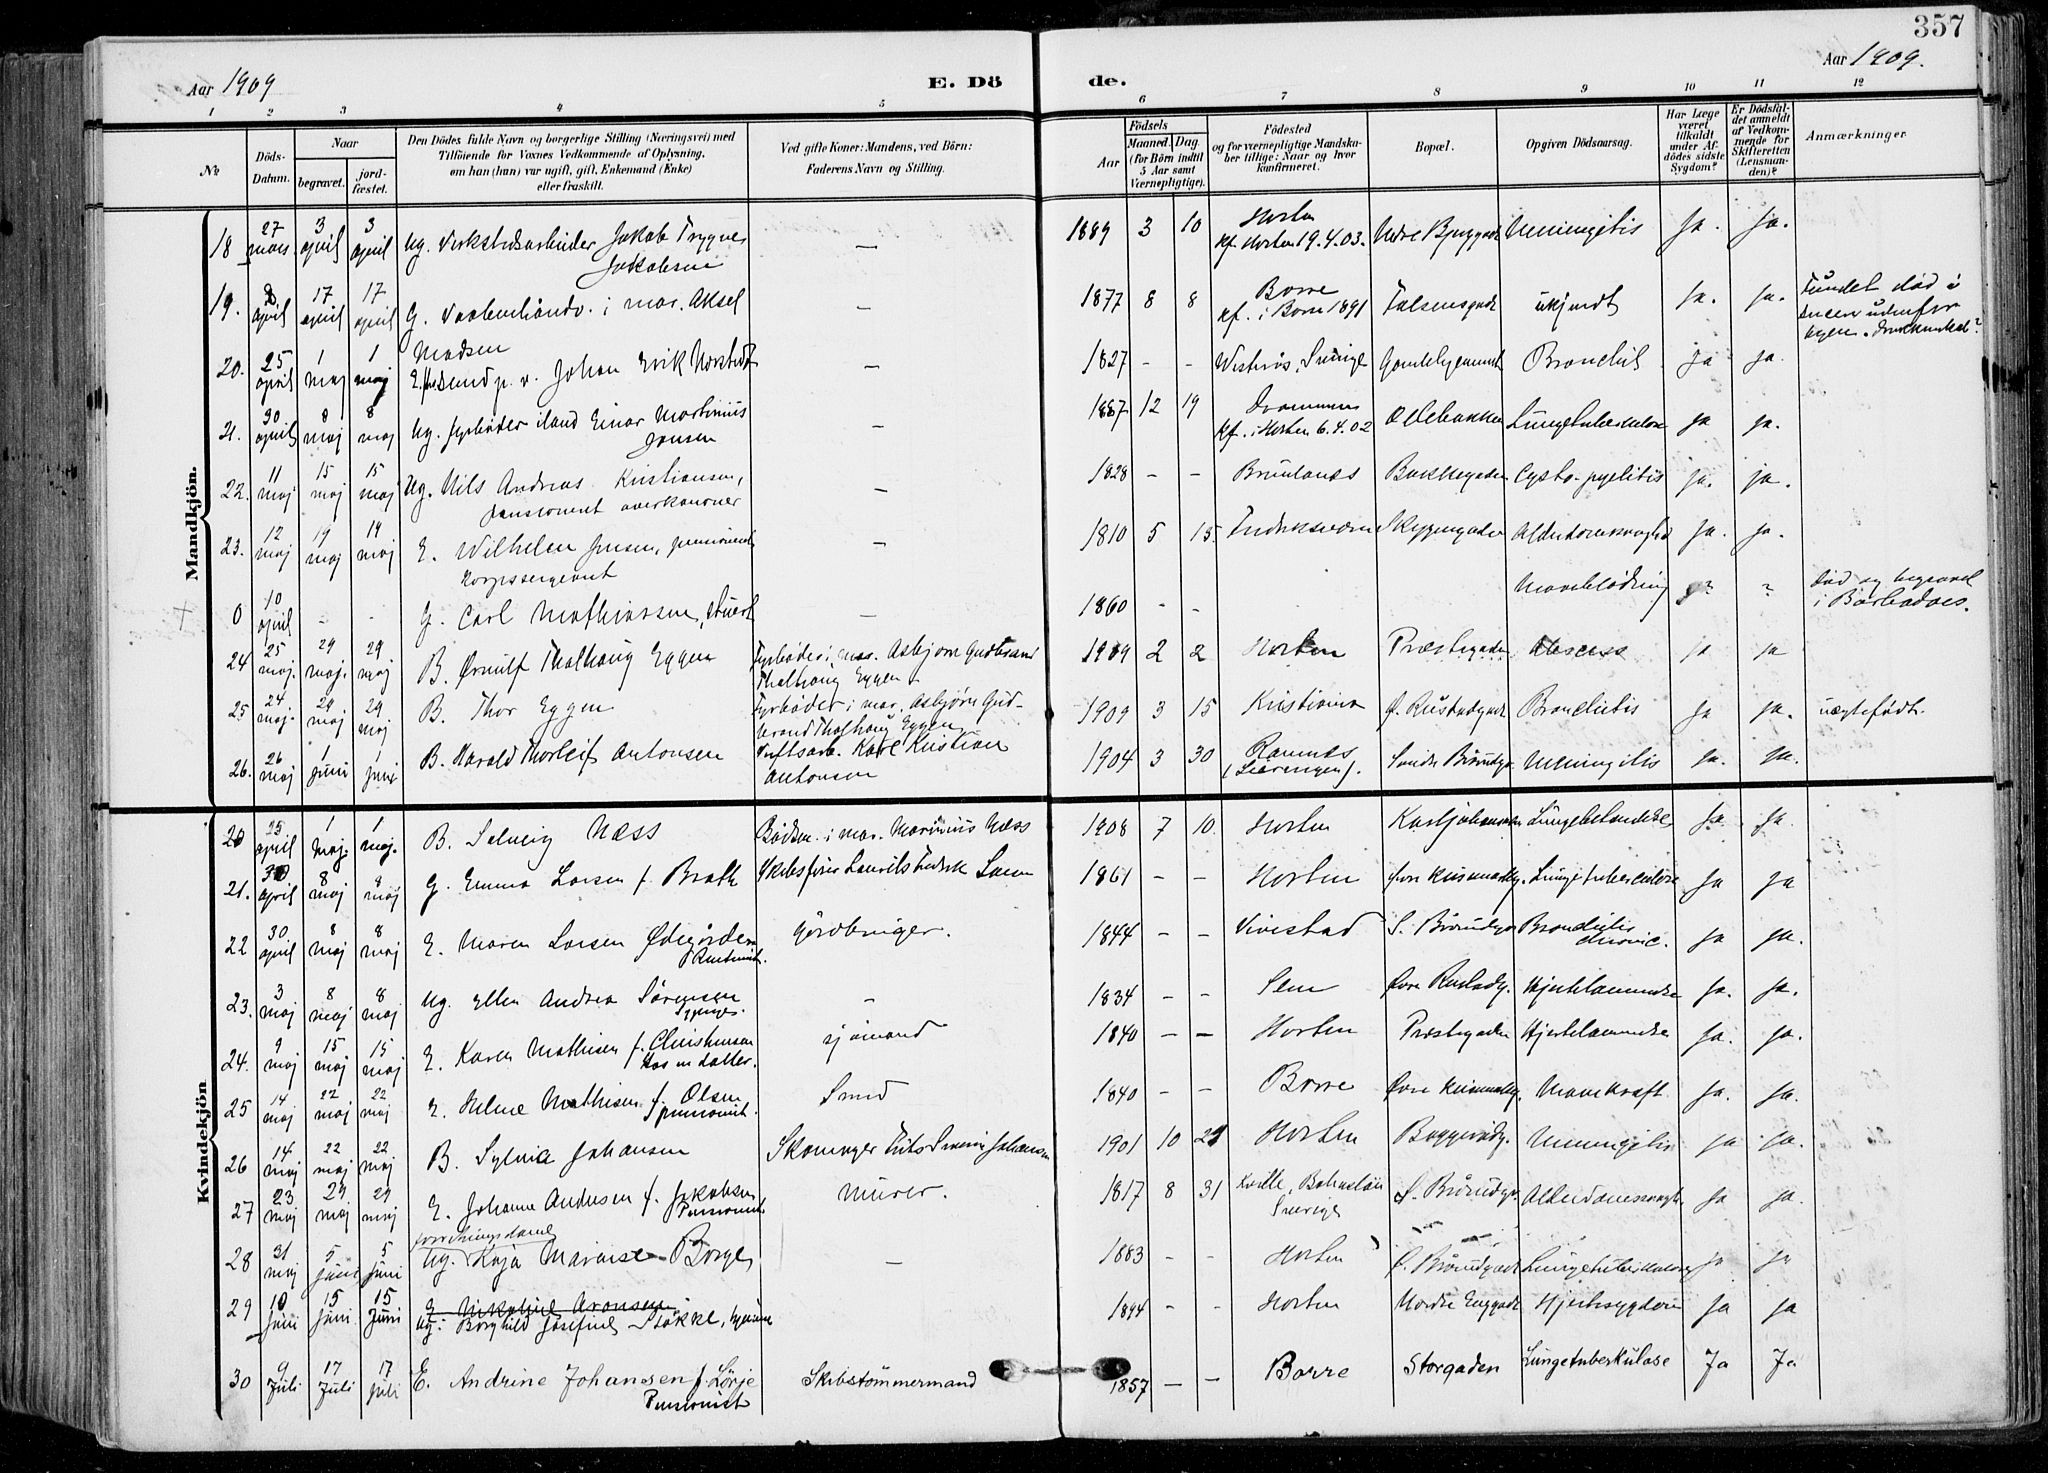 357
Aar 1909
E. Dö
de.
Aar 1909.
1 2 3 4 5 6 7 8 9 10 11 12
No
Döds-Datum.
Naar
begravet.
jord-fæstet.
Den Dödes fulde Navn og borgerlige Stilling (Næringsvei) med
Tilföiende for Voxnes Vedkommende af Oplysning,
om han (hun) var ugift, gift, Enkemand (Enke)
eller fraskilt.
Ved gifte Koner: Mandens, ved Börn:
Faderens Navn og Stilling.
Aar
Födsels
Maaned. Dag.
(for Börn indtil
5 Aar samt
Værnepligtige).
Födested
og for værnepligtige Mandska-
ber tillige: Naar og hvor
konfirmeret.
Bopæl.
Opgiven Dödsaarsag.
Har Læge
været
tilkaldt
under Af-
dödes sidste
Sygdom?
Er Dödsfal-
det anmeldt
af Vedkom-
mende for
Skifteretten
(Lensman-
den)?
Anmærkninger
Mandkjön.
18 27 mars 3 april 3 april Ug. Verkstedsarbeider Jakob Trygves Jakobsen — 1889 3 10 Horten kf. Horten 19.4.03. Nedre Meningitis Ja. Ja.
19. april 17 april 17 april G. i mar. Aksel Madsen — 1877 8 8 Borre kf. i Borre 1891 Falsensgade ukjendt Ja. Ja. Fundet död i udenfor byen.
20. 25 april 1 maj 1 maj E. p. v. Johan Erik Norstedt — 1827 - - Sverige Bronchit ja ja.
21. 30 april 8 maj 8 maj Ug. fyrböder iland Einar Martinius Jansen — 1887 12 19 Drammen kf. i Horten 6.4.02 Lungetuberkulose ja ja.
22. 11 maj 15 maj 15 maj Ug. Nils Andreas Kristiansen, pensioneret overkanoner — 1828 - - Brunlanes Bakkegaden Cysto-pyelitis ja. ja.
23. 12 maj 19 maj 19 maj E. Wilhelm Jensen, pensioneret korpssergeant — 1810 5 15. Fredriksværn Skyggegaden Alderdomssvaghed Ja. Ja.
0 10 april - - G. Carl Mathiassen, stuert — 1860 - - Maveblödning ? " död og begravet i Barbadoes.
24 25 maj. 29 maj. 29 maj B. Ørnulf Thalhaug Eggen Fyrböder i mar. Asbjørn Gudbrand Thalhaug Eggen 1909 2 2 Horten Præstegaden Abscess ja ja
25 24 maj. 29 maj 29 maj B. Thor Eggen Fyrböder i mar. Asbjørn Gud-brand Thalhaug Eggen 1909 3 15 Kristiania Ø. Rustadgade Bronchitis Ja ja. uægtefødt.
26. 26 maj 1 juni 1 juni B. Harald Thorleif Antonsen Karl Kristian Antonsen 1904 3 30 Ramnes Söndre Braarudg. Meningitis ja. ja.
Kvindekjön
20 25 april 1 maj. 1 maj. B. Solveig Næss i mar. Marinius Næss 1908 7 10. Horten Karljohansv. Lungebetændelse Ja Ja.
21. 30 april 8 maj 8 maj G. Emma Larsen f. Brath Skibsförer Laurits Fredrik Larsen 1861 - - Horten Øvre Keisemarkg. Lungetuberculose Ja ja
22 30 april 8 maj 8 maj E. Maren Larsen Ødegården Gårdbruger. 1844 - - Vivestad S. Braarudgt. Bronchitis chronic. ja ja.
23. 3 maj 8 maj 8 maj Ug. Ellen Andrea Sörensen - 1834 - - Sem Øvre Rustadg. Hjertelammelse Ja. Ja.
24. 9 maj 15 maj 15 maj E. Karen Mathisen f. Christensen Hos en datter. sjömand 1840 - - Horten Præstegaden Hjertelammelse Ja. Ja.
25 14 maj 22 maj 22 maj E. Helene Mathisen f. Olsen pensionist. Smed 1840 - - Borre Øvre Keisemarkg. Mavekræft. Ja. Ja.
26 14 maj 22 maj 22 maj B. Sylvia Johansen Skomager Frits Severin Johansen 1901 10 Horten Meningitis ja ja.
27 23 maj 29 maj 29 maj E. Johanne Andersen f. Jakobsen Pensionist Murer. 1817 8 31 Kville, Bohuslän Sverige S. Braarudgt. Alderdomssvaghed Ja ja.
28 31 maj 5 juni 5 juni forretningsdame Ug. Kaja Marcise Borge — 1883 - - Horten Ö. Braarudgade Lungetuberkulose ja Ja
29 10 juni 15 juni 15 juni E Nikoline Aronsen Ug. Borghild Josefine Stokke, hjemme 1894 - - Horten Nordre Enggade Hjertesygdom Ja Ja
30 9 Juli 17 Juli 17 juli E. Andrine Johansen f. Lörje Pensionist Skibstömmermand 1857 - - Borre Storgaden Lungetuberkulose Ja Ja